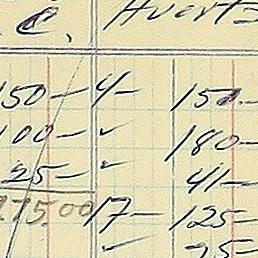 C. Avert
150- 4- 150-
100- ✓ 180-
25- ✓ 41-
275.00 17- 125-
✓ 25-